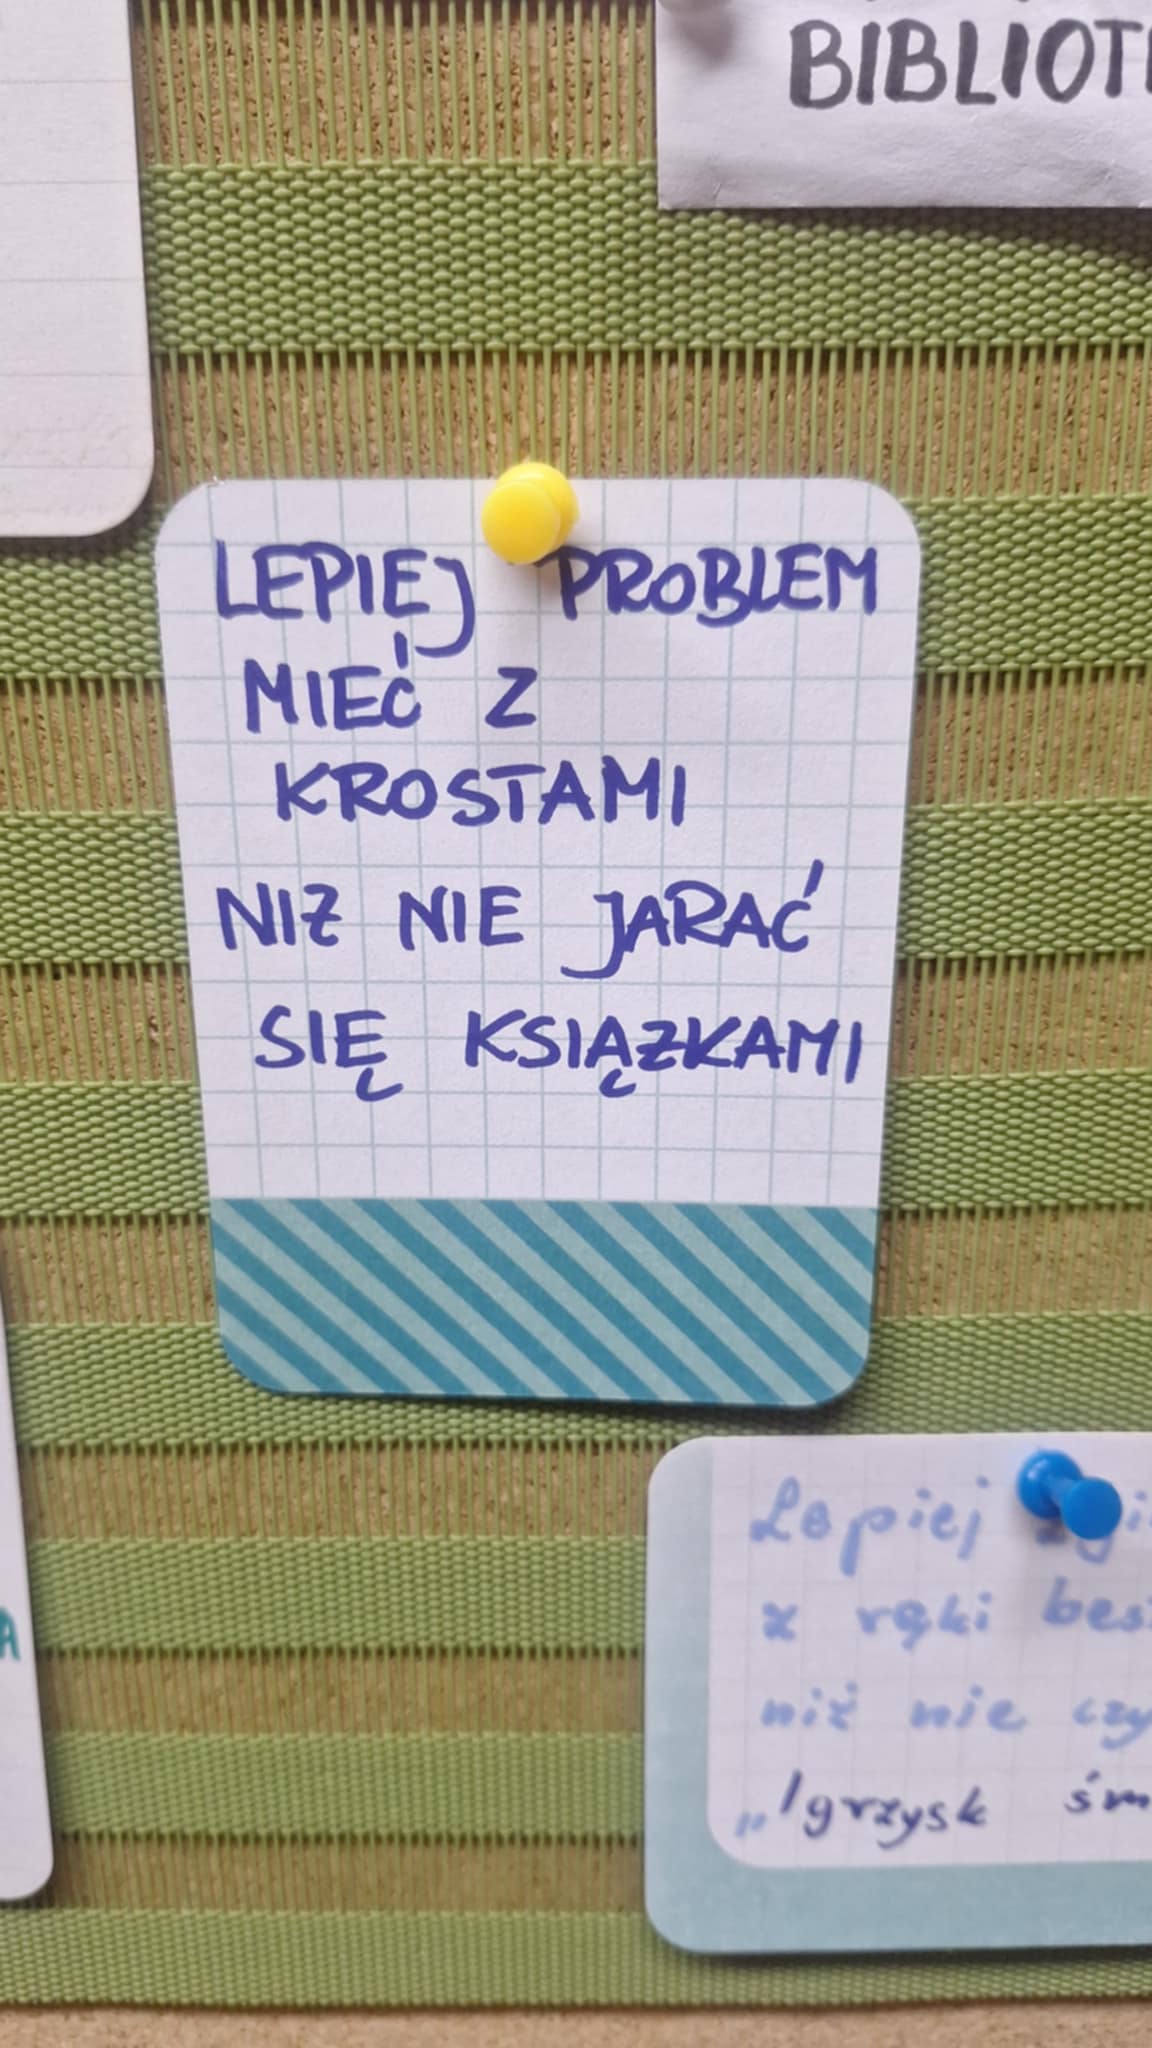 BIBLIOT
LEPIEJ PROBLEM
MIEĆ Z
KROSTAMI
NIŻ NIE JARAĆ
SIĘ KSIĄŻKAMI
Lepiej
z ręki
niż nie
„Igrzysk
A